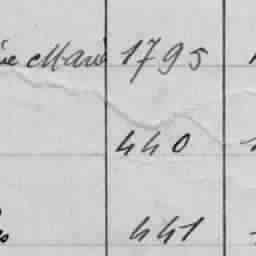 Marie 1795
440
441